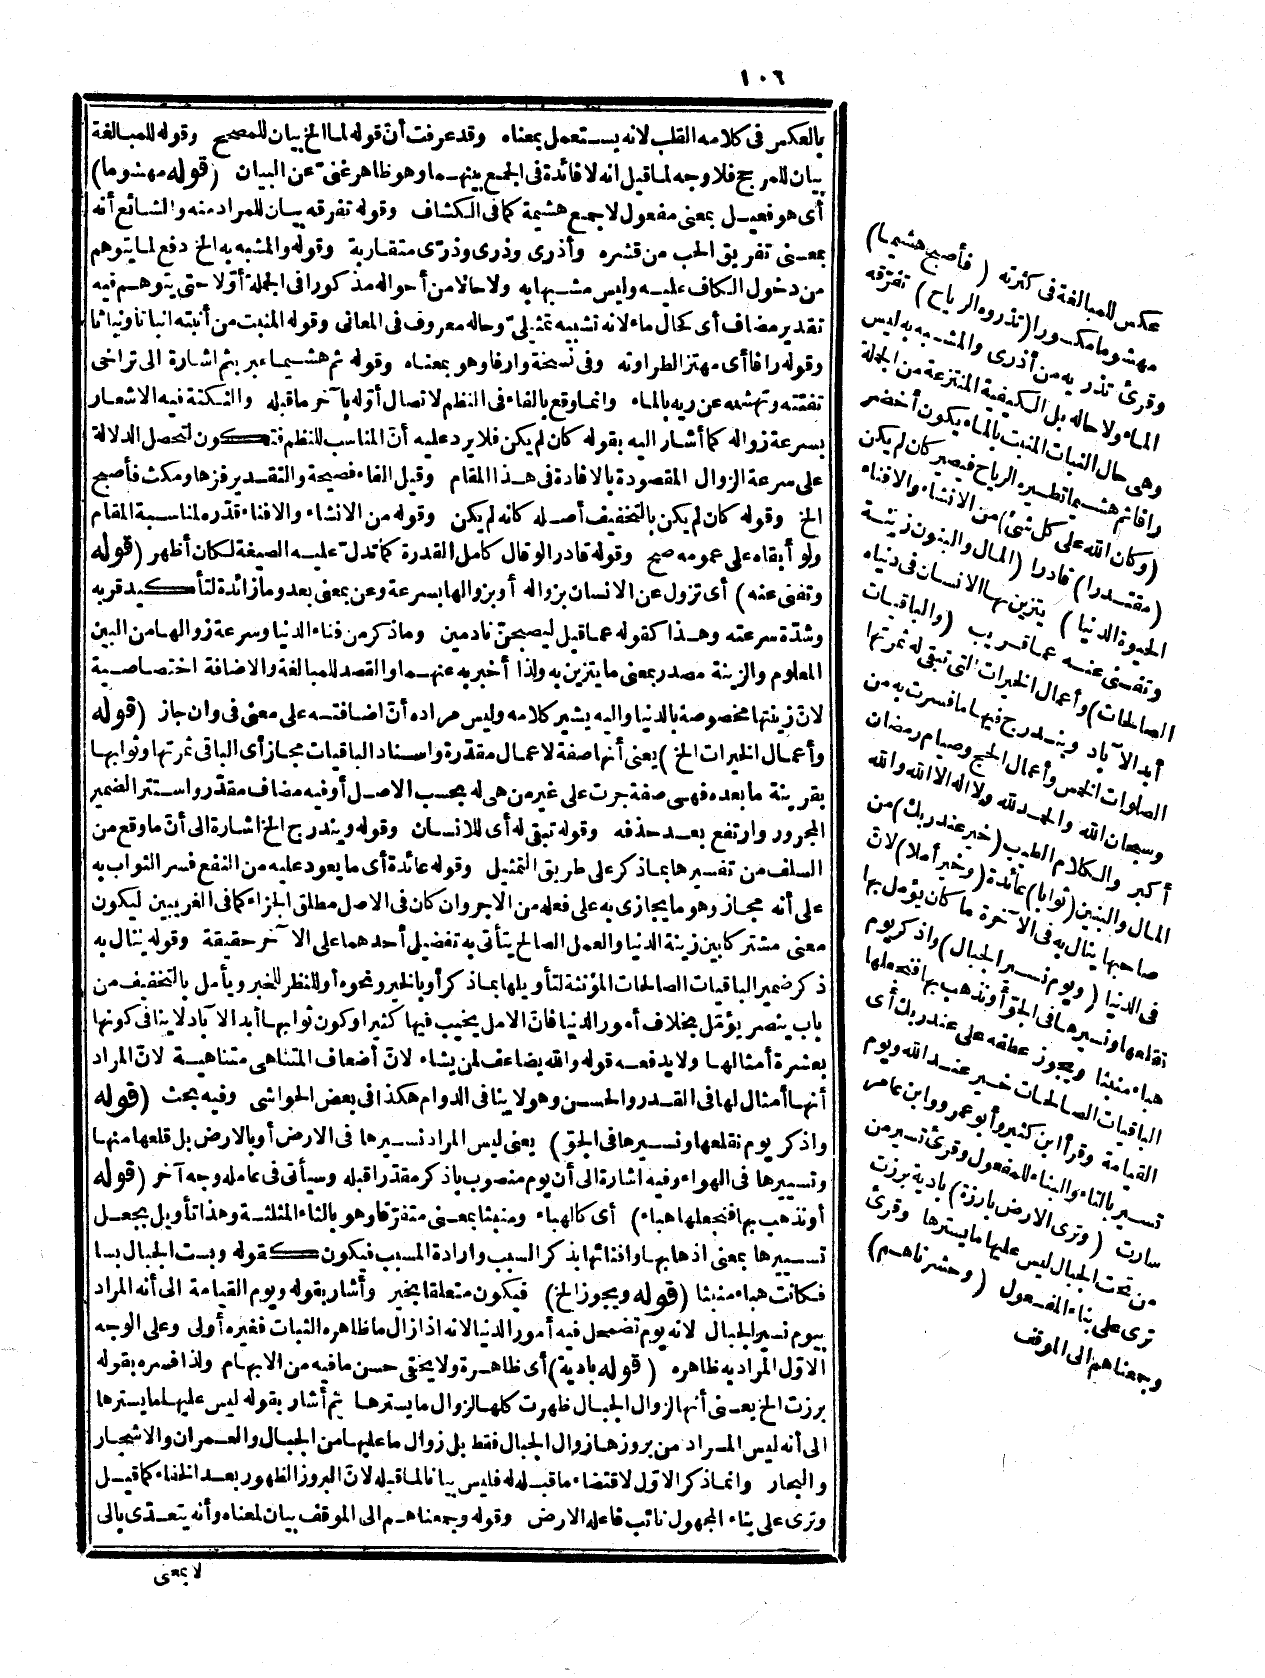 ١٠٦
بالعكس فى كلامه القلب لانه يستعمل بمعناه وقد عرفت أنّ قوله لما الخ بيان للمصحح وقوله للمبالغة
بيان للمرجح فلا وجه لما قيل انه لا فائدة فى الجمع بينهما وهو ظاهر غنىّ عن البيان (قوله مهشوما)
أى هو فعيل بمعنى مفعول لا جمع هشيمة كما فى الكشاف وقوله تفرقه بيان للمراد منه والشائع أنه
بمعنى تفريق الحب من قشره وأذرى وذرى وذرّى متقاربة وقوله والمشبه به الخ دفع لما يتوهم
من دخول الكاف عليه وليس مشبها به ولا حالا من أحواله مذكورا فى الجملة أوّلا حتى يتوهم فيه
تقدير مضاف أى كحال ماء لانه تشبيه تمثيلىّ وحاله معروف فى المعانى وقوله المنبت من أنبته انباتا ونباتا
وقوله رافا أى مهتز الطراوته وفى نسخة وارفا وهو بمعناه وقوله ثم هشيما عبر بثم اشارة الى تراخى
تفتته وتهشمه عن ريه بالماء وانما وقع بالفاء فى النظم لاتصال أوّله بآخر ما قبله والنكتة فيه الاشعار
بسرعة زواله كما أشار اليه بقوله كان لم يكن فلا يرد عليه أنّ المناسب للنظم فتكون لتحصل الدلالة
على سرعة الزوال المقصودة بالافادة فى هذا المقام وقيل الفاء فصيحة والتقدير فزها ومكث فأصبح
الخ وقوله كان لم يكن بالتخفيف أصله كانه لم يكن وقوله من الانشاء والافناء قدّره لمناسبة المقام
ولو أبقاه على عمومه صح وقوله قادرا لو قال كامل القدرة كما تدلّ عليه الصيغة لكان أظهر (قوله
وتفنى عنه) أى تزول عن الانسان بزواله أو بزوالها بسرعة وعن بمعنى بعد وما زائدة لتأكيد قربه
وشدّة سرعته وهذا كقوله عما قيل ليصبحنّ نادمين وما ذكر من فناء الدنيا وسرعة زوالها من البين
المعلوم والزينة مصدر بمعنى ما يتزين به ولذا أخبر به عنهما والقصد للمبالغة والاضافة اختصاصية
لانّ زينتها مخصوصة بالدنيا واليه يشير كلامه وليس مراده أنّ اضافته على معنى فى وان جاز (قوله
وأعمال الخيرات الخ) يعنى أنها صفة لاعمال مقدّرة واسناد الباقيات مجاز أى الباقى ثمرتها وثوابها
بقرينة ما بعده فهى صفة جرت على غير من هى له بحسب الاصل أو فيه مضاف مقدّر واستتر الضمير
المجرور وارتفع بعد حذفه وقوله تبقى له أى للانسان وقوله ويندرج الخ اشارة الى أنّ ما وقع من
السلف من تفسيرها بما ذكر على طريق التمثيل وقوله عائدة أى ما يعود عليه من النفع فسر الثواب به
على أنه مجاز وهو ما يجازى به على فعله من الاجر وان كان فى الاصل مطلق الجزاء كما فى الغريبين ليكون
معنى مشتركا بين زينة الدنيا والعمل الصالح يتأتى به تفضيل أحدهما على الآخر حقيقة وقوله ينال به
ذكر ضمير الباقيات الصالحات المؤنثة لتأويلها بما ذكر أو بالخير ونحوه أو للنظر للخبر ويأمل بالتخفيف من
باب ينصر يؤمّل بخلاف أمور الدنيا فانّ الامل يخيب فيها كثيرا وكون ثوابها أبد الآباد لا ينافى كونها
بعشرة أمثالها ولا يدفعه قوله والله يضاعف لمن يشاء لانّ أضعاف المتناهى متناهية لانّ المراد
أنها أمثال لها فى القدر والحسن وهو لا ينافى الدوام هكذا فى بعض الحواشى وفيه بحث (قوله
واذكر يوم نقلعها ونسيرها فى الجوّ) يعنى ليس المراد تسييرها فى الارض أو بالارض بل قلعها منها
وتسييرها فى الهواء وفيه اشارة الى أن يوم منصوب باذكر مقدّرا قبله وسيأتى فى عامله وجه آخر (قوله
أو نذهب بها فنجعلها هباء) أى كالهباء ومنبثا بمعنى متفرّقا وهو بالثاء المثلثة وهذا تأويل بجعل
تسييرها بمعنى اذهابها وافنائها بذكر السبب وارادة المسبب فيكون كقوله وبست الجبال بسا
فكانت هباء منبثا (قوله ويجوز الخ) فيكون متعلقا بخير وأشار بقوله ويوم القيامة الى أنه المراد
بيوم تسير الجبال لانه يوم تضمحل فيه أمور الدنيا لانه اذا زال ما ظاهره الثبات فغيره أولى وعلى الوجه
الاوّل المراد به ظاهره (قوله بادية) أى ظاهرة ولا يخفى حسن ما فيه من الابهام ولذا فسره بقوله
برزت الخ يعنى أنها لزوال الجبال ظهرت كلها لزوال ما يسترها ثم أشار بقوله ليس عليها ما يسترها
الى أنه ليس المراد من بروزها زوال الجبال فقط بل زوال ما عليها من الجبال والعمران والاشجار
والبحار وانما ذكر الاوّل لاقتضاء ما قبله له فليس بيانا لما قبله لانّ البروز الظهور بعد الخفاء كما قيل
وترى على بناء المجهول نائب فاعله الارض وقوله وجمعناهم الى الموقف بيان لمعناه وأنه يتعدّى بالى
لا بمعنى
عكس للمبالغة فى كثرته (فأصبح هشيما)
مهشوما مكسورا (تذروه الرياح) تفرّقه
وقرئ تذريه من أذرى والمشبه به ليس
الماء ولا حاله بل الكيفية المنتزعة من الجملة
وهى حال النبات المنبت بالماء يكون أخضر
رافا ثم هشيما تطيره الرياح فيصير كان لم يكن
(وكان الله على كل شئ) من الانشاء والافناء
(مقتدرا) قادرا (المال والبنون زينة
الحيوة الدنيا) يتزين بها الانسان فى دنياه
وتفنى عنه عما قريب (والباقيات
الصالحات) وأعمال الخيرات التى تبقى له ثمرتها
أبد الآباد ويندرج فيها ما فسرت به من
الصلوات الخمس وأعمال الحج وصيام رمضان
وسبحان الله والحمد لله ولا اله الا الله والله
أكبر والكلام الطيب (خير عند ربك) من
المال والبنين (ثوابا) عائدة (وخير أملا) لانّ
صاحبها ينال به فى الآخرة ما كان يؤمل بها
فى الدنيا (ويوم نسير الجبال) واذكر يوم
نقلعها ونسيرها فى الجوّ أو نذهب بها فنجعلها
هباء منبثا ويجوز عطفه على عند ربك أى
الباقيات الصالحات خير عند الله ويوم
القيامة وقرأ ابن كثير وأبو عمرو وابن عامر
تسير بالتاء والبناء للمفعول وقرئ تسير من
سارت (وترى الارض بارزة) بادية برزت
من تحت الجبال ليس عليها ما يسترها وقرئ
ترى على بناء المفعول (وحشرناهم)
وجمعناهم الى الموقف